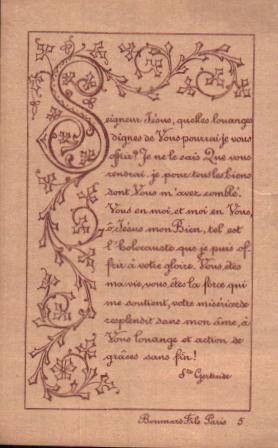 Seigneur Jésus, quelles louanges
dignes de Vous pourrai-je vous
offrir? Je ne le sais Que vous
rendrai-je pour tous les biens
dont Vous m'avez comblé.
Vous en moi, et moi en Vous,
ô Jésus mon Bien, tel est
l'holocauste que je puis of-
frir à votre gloire. Vous êtes
ma vie, vous êtes la force qui
me soutient, votre miséricorde
resplendit dans mon âme, à
Vous louange et action de
grâces sans fin!
Ste Gertrude
Boumard Fils Paris 5